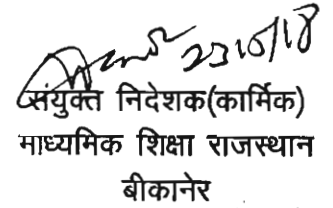 23/10/18
संयुक्त निदेशक(कार्मिक)
माध्यमिक शिक्षा राजस्थान
बीकानेर